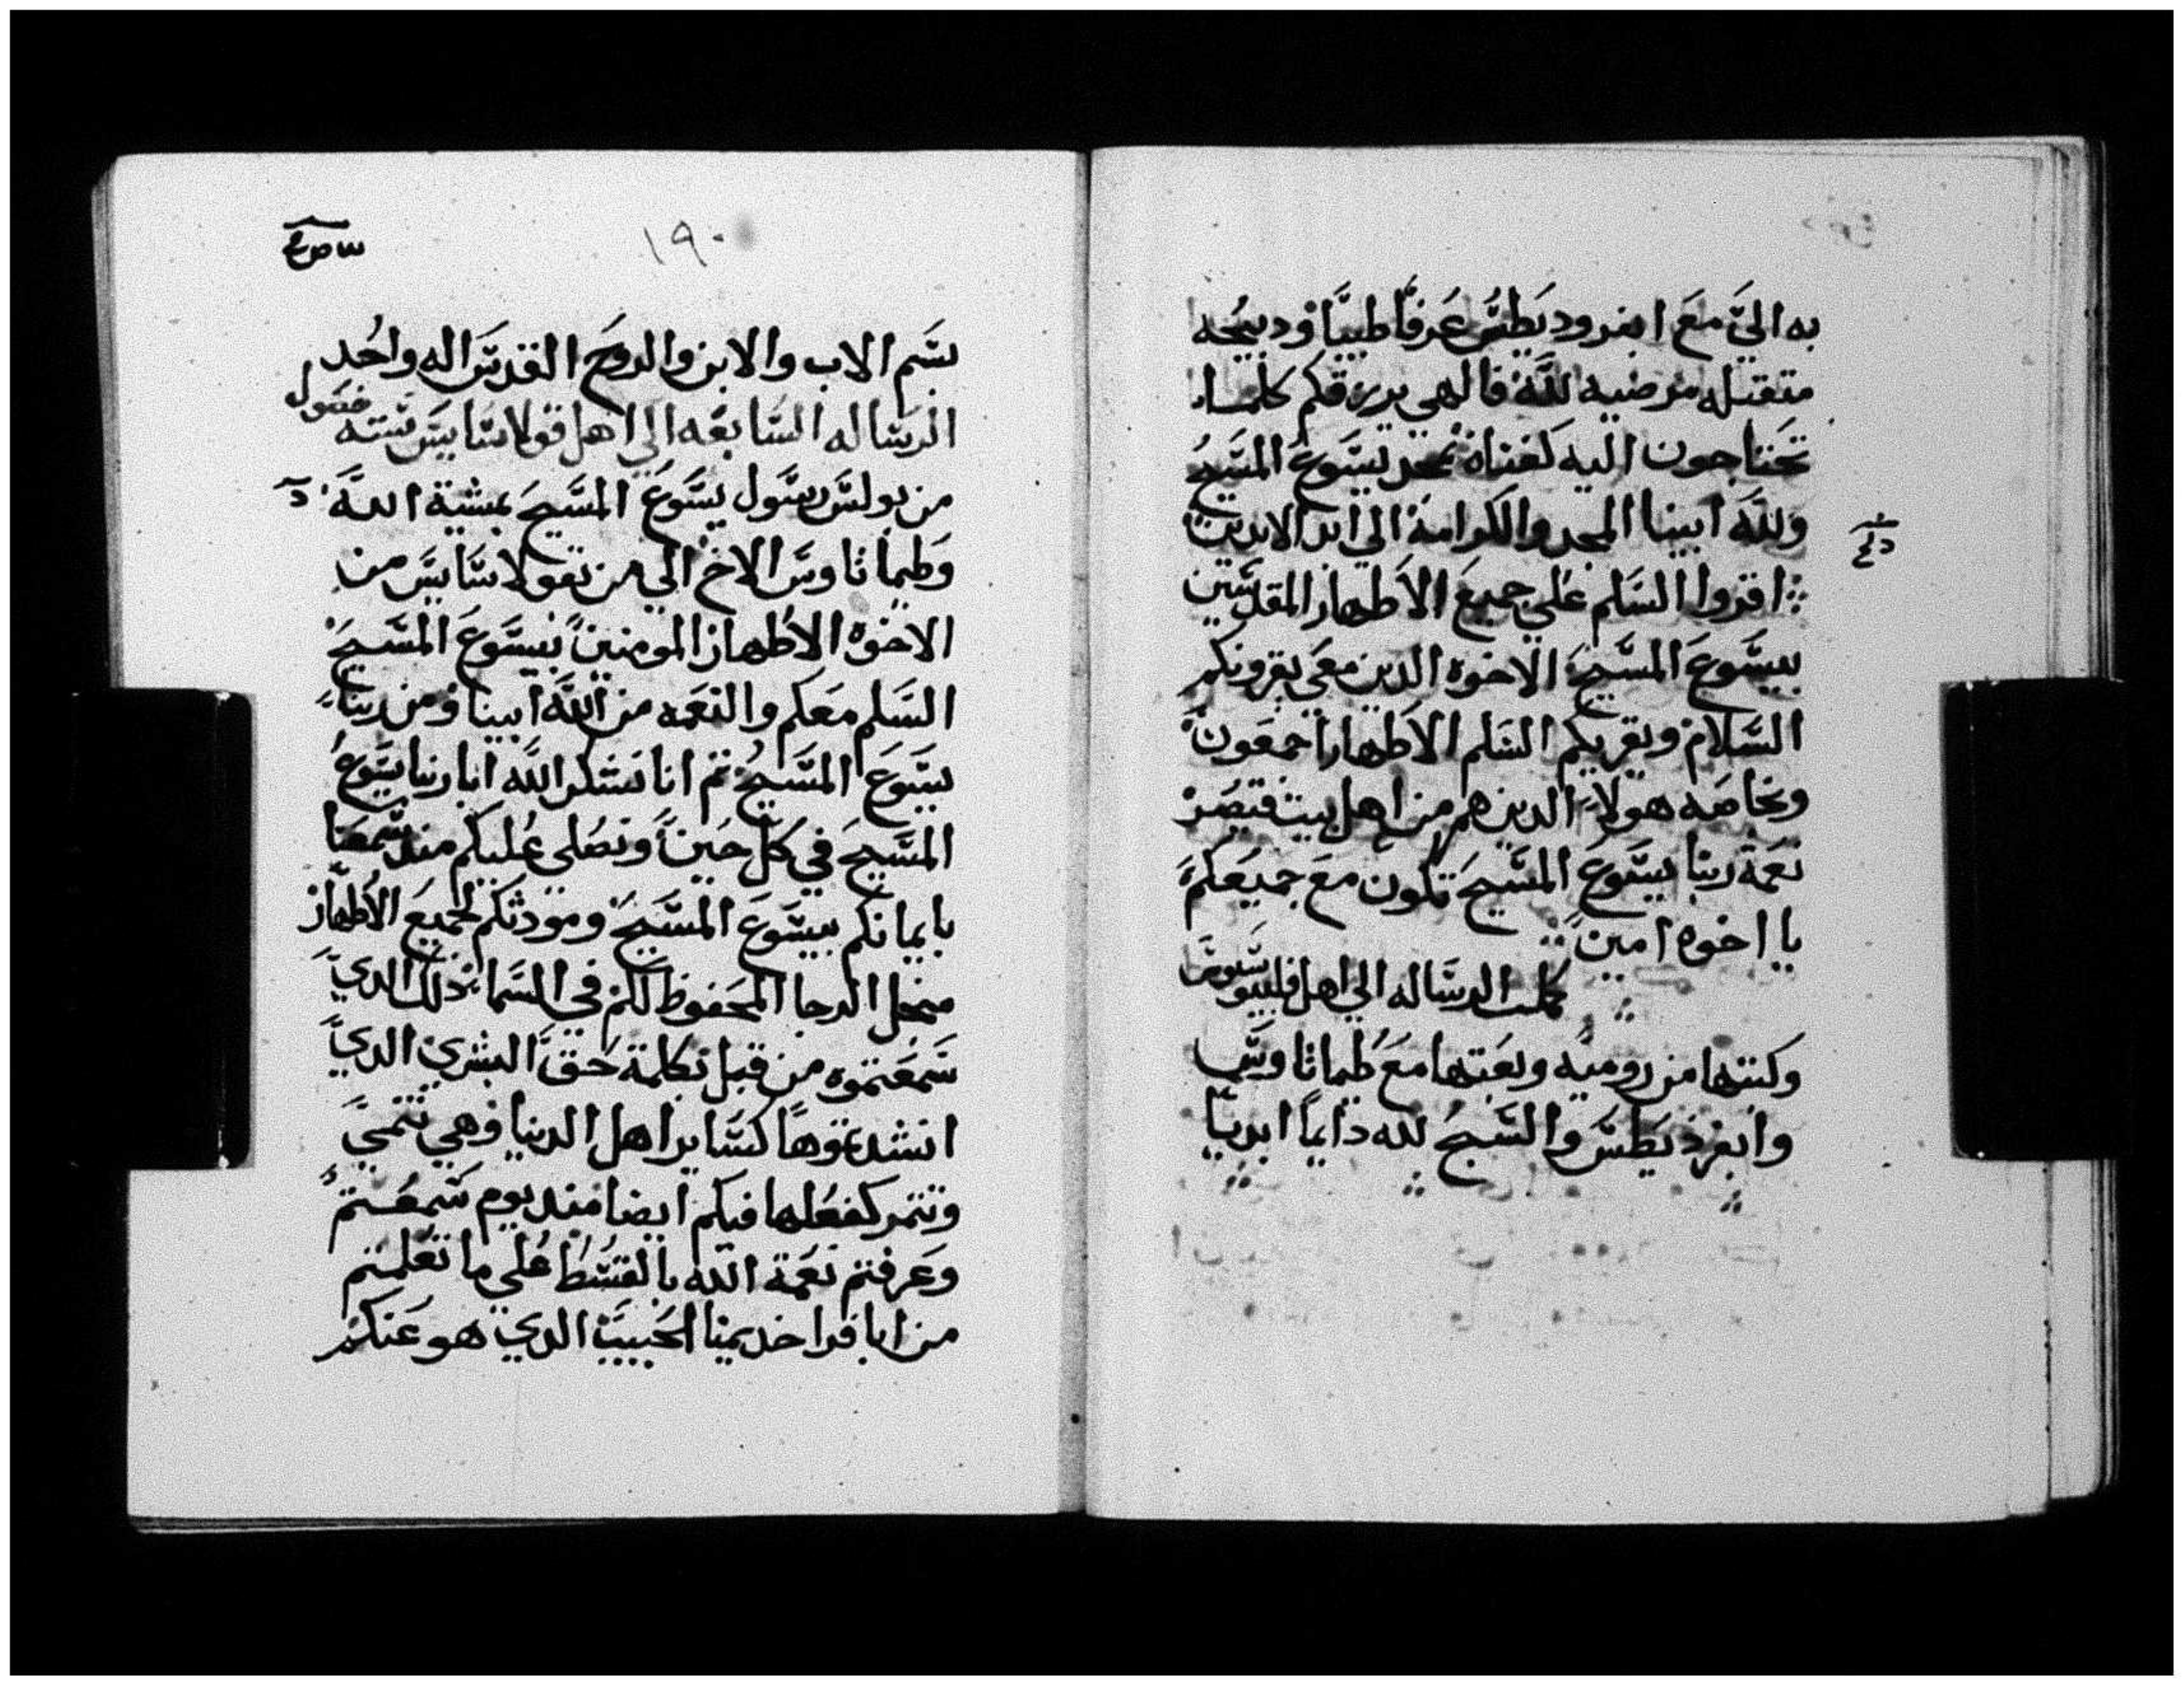 به الي مع ابفروديطس عرفا طيبا وذبيحه
متقبله مرضيه لله فالهي يرزقكم كلما
تحتاجون اليه كغناه بمجد يسوع المسيح
ولله ابينا المجد والكرامة الي ابد الابدين
اقروا السلم علي جميع الاطهار المقدسين
بيسوع المسيح الاخوه الدين معي يقرونكم
السلام ويقريكم السلم الاطهار اجمعون
وبخاصه هولاء الدين هم من اهل بيت قيصر
نعمة ربنا يسوع المسيح تكون مع جميعكم
يا اخوه امين
كملت الرساله الي اهل فليبوسوس
وكتبتها من روميه وبعتها مع طيماثاوس
وابفرديطس والسبح لله دايما ابديا
١٩٠
بسم الاب والابن والروح القدس اله واحد
الرساله السابعه الي اهل قولاسايس سته فصول
من بولس رسول يسوع المسيح بمشية الله
وطيماثاوس الاخ الي من بقولاسايس من
الاخوه الاطهار المومنين بيسوع المسيح
السلم معكم والنعمه من الله ابينا ومن ربنا
يسوع المسيح ثم انا نشكر الله ابا ربنا يسوع
المسيح في كل حين ونصلي عليكم مند سمعنا
بايمانكم بيسوع المسيح ومودتكم لجميع الاطهار
من اجل الرجا المحفوظ لكم في السما ذلك الدي
سمعتموه من قبل بكلمة حق البشري الدي
انشدتموها كساير اهل الدنيا وهي تنمي
وتتمر كفعلها فيكم ايضا مند يوم سمعتم
وعرفتم نعمة الله بالقسط علي ما تعلمتم
من ابافرا خديمنا الحبيب الدي هو عنكم